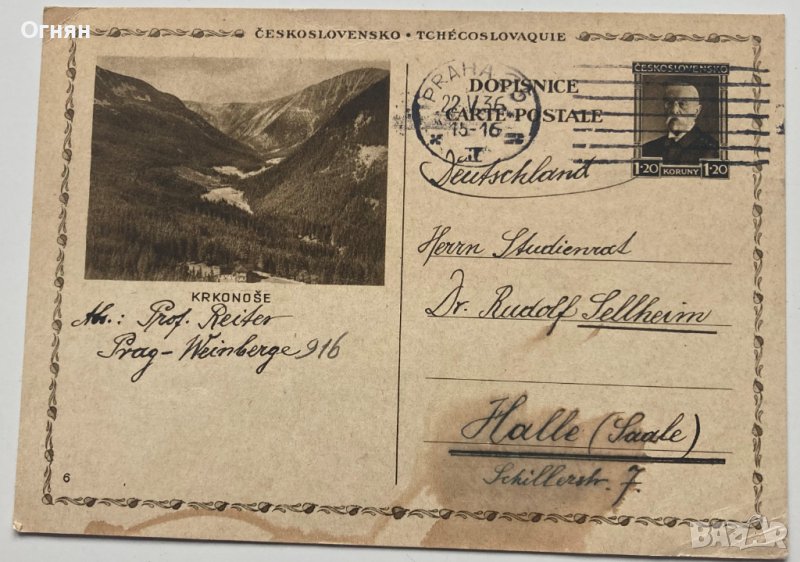 Огнян
ČESKOSLOVENSKO • TCHÉCOSLOVAQUIE
PRAHA
22.V.36
15-16
DOPISNICE
CARTE-POSTALE
ČESKOSLOVENSKO
1·20 KORUNY 1·20
Deutschland
KRKONOŠE
Abs.: Prof. Reiter
Prag-Weinberge 916
Herrn Studienrat
Dr. Rudolf Sellheim
Halle (Saale)
Schillerstr. 7.
6
bazar